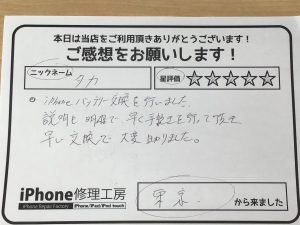 本日は当店をご利用頂きありがとうございます！
ご感想をお願いします！
ニックネーム
タカ
星評価 ☆☆☆☆☆
iPhone バッテリー交換を行いました。
説明も明確で、早く手続きを行って頂き
早い交換で大変助かりました。
iPhone修理工房
iPhone Repair Factory iPhone/iPad/iPod touch
東京
から来ました